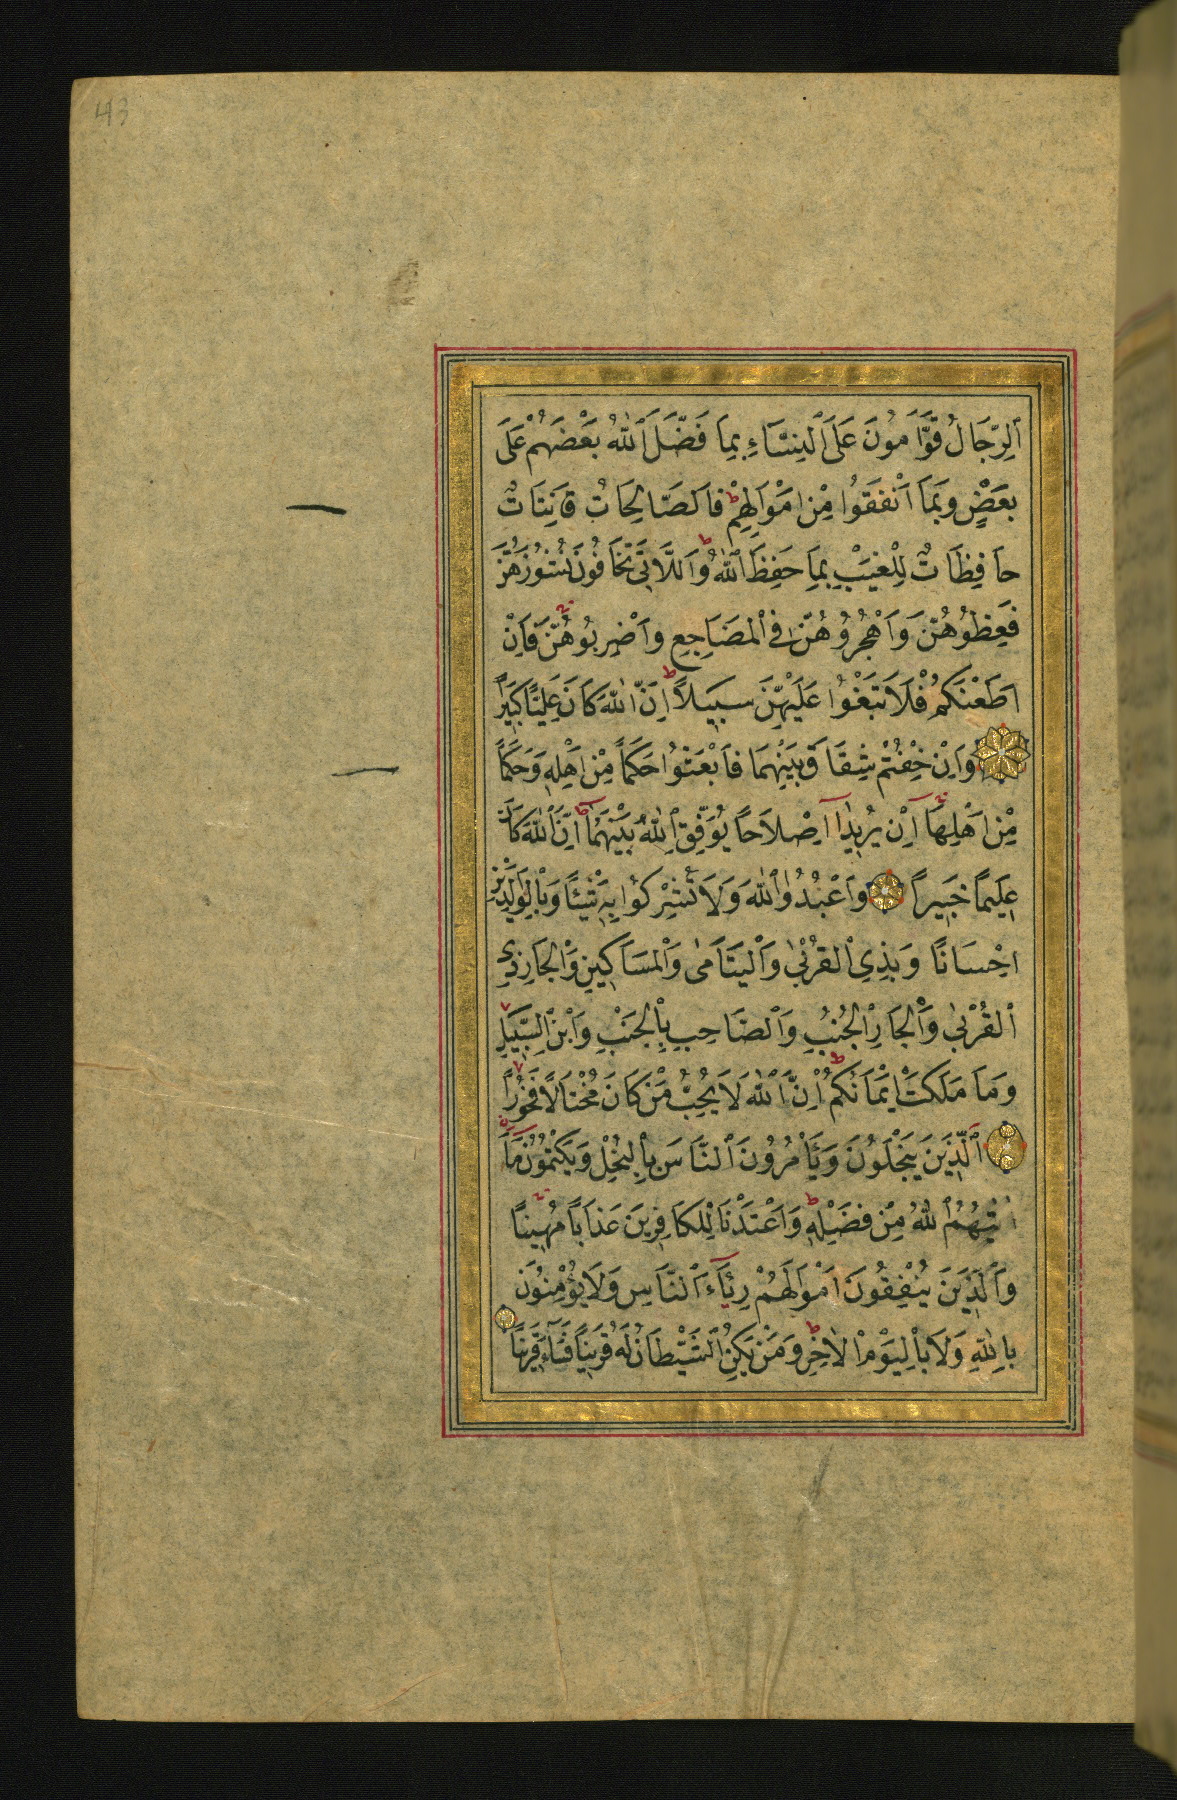 43
اَلرِّجَالُ قَوَّامُونَ عَلَى النِّسَاءِ بِمَا فَضَّلَ اللّٰهُ بَعْضَهُمْ عَلَى
بَعْضٍ وَبِمَا اَنْفَقُوا مِنْ اَمْوَالِهِمْ ط فَالصَّالِحَاتُ قَانِتَاتٌ
حَافِظَاتٌ لِلْغَيْبِ بِمَا حَفِظَ اللّٰهُ ط وَاللَّاتِي تَخَافُونَ نُشُوزَهُنَّ
فَعِظُوهُنَّ وَاهْجُرُوهُنَّ فِي الْمَضَاجِعِ وَاضْرِبُوهُنَّ ج فَاِنْ
اَطَعْنَكُمْ فَلَا تَبْغُوا عَلَيْهِنَّ سَبِيلًا ط اِنَّ اللّٰهَ كَانَ عَلِيًّا كَبِيرًا
وَاِنْ خِفْتُمْ شِقَاقَ بَيْنِهِمَا فَابْعَثُوا حَكَمًا مِنْ اَهْلِهِ وَحَكَمًا
مِنْ اَهْلِهَا ج اِنْ يُرِيدَا اِصْلَاحًا يُوَفِّقِ اللّٰهُ بَيْنَهُمَا ط اِنَّ اللّٰهَ كَانَ
عَلِيمًا خَبِيرًا وَاعْبُدُوا اللّٰهَ وَلَا تُشْرِكُوا بِهِ شَيْئًا وَبِالْوَالِدَيْنِ
اِحْسَانًا وَبِذِي الْقُرْبٰى وَالْيَتَامٰى وَالْمَسَاكِينِ وَالْجَارِ ذِي
الْقُرْبٰى وَالْجَارِ الْجُنُبِ وَالصَّاحِبِ بِالْجَنْبِ وَابْنِ السَّبِيلِ
وَمَا مَلَكَتْ اَيْمَانُكُمْ ط اِنَّ اللّٰهَ لَا يُحِبُّ مَنْ كَانَ مُخْتَالًا فَخُورًا
اَلَّذِينَ يَبْخَلُونَ وَيَاْمُرُونَ النَّاسَ بِالْبُخْلِ وَيَكْتُمُونَ مَا
اٰتٰيهُمُ اللّٰهُ مِنْ فَضْلِهِ ط وَاَعْتَدْنَا لِلْكَافِرِينَ عَذَابًا مُهِينًا ج
وَالَّذِينَ يُنْفِقُونَ اَمْوَالَهُمْ رِئَاءَ النَّاسِ وَلَا يُؤْمِنُونَ
بِاللّٰهِ وَلَا بِالْيَوْمِ الْاٰخِرِ ط وَمَنْ يَكُنِ الشَّيْطَانُ لَهُ قَرِينًا فَسَاءَ قَرِينًا